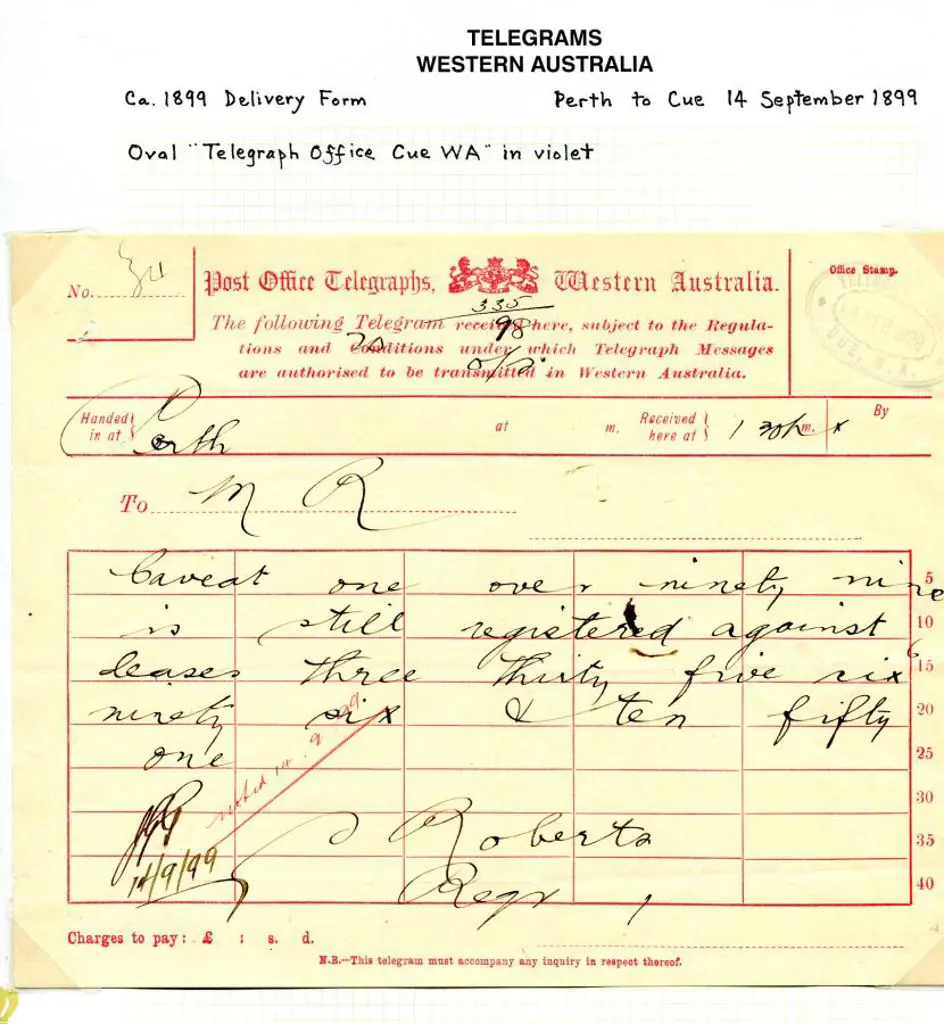 TELEGRAMS
WESTERN AUSTRALIA
Ca. 1899 Delivery Form Perth to Cue 14 September 1899
Oval "Telegraph Office Cue WA" in violet
No. 34
Post Office Telegraphs, Western Australia.
Office Stamp.
335
98
The following Telegram received here, subject to the Regula-
tions and Conditions under which Telegraph Messages
are authorised to be transmitted in Western Australia.
CUE. W.A.
Handed in at Perth at m. Received here at 1 30 p m. By
To M R
Caveat one over ninety nine 5
is still registered against 10
leases three thirty five six 15
ninety six & ten fifty 20
one 25
noted 14.9.99
30
Roberts 35
14/9/99
Regr 40
Charges to pay: £ : s. d.
N.B.—This telegram must accompany any inquiry in respect thereof.